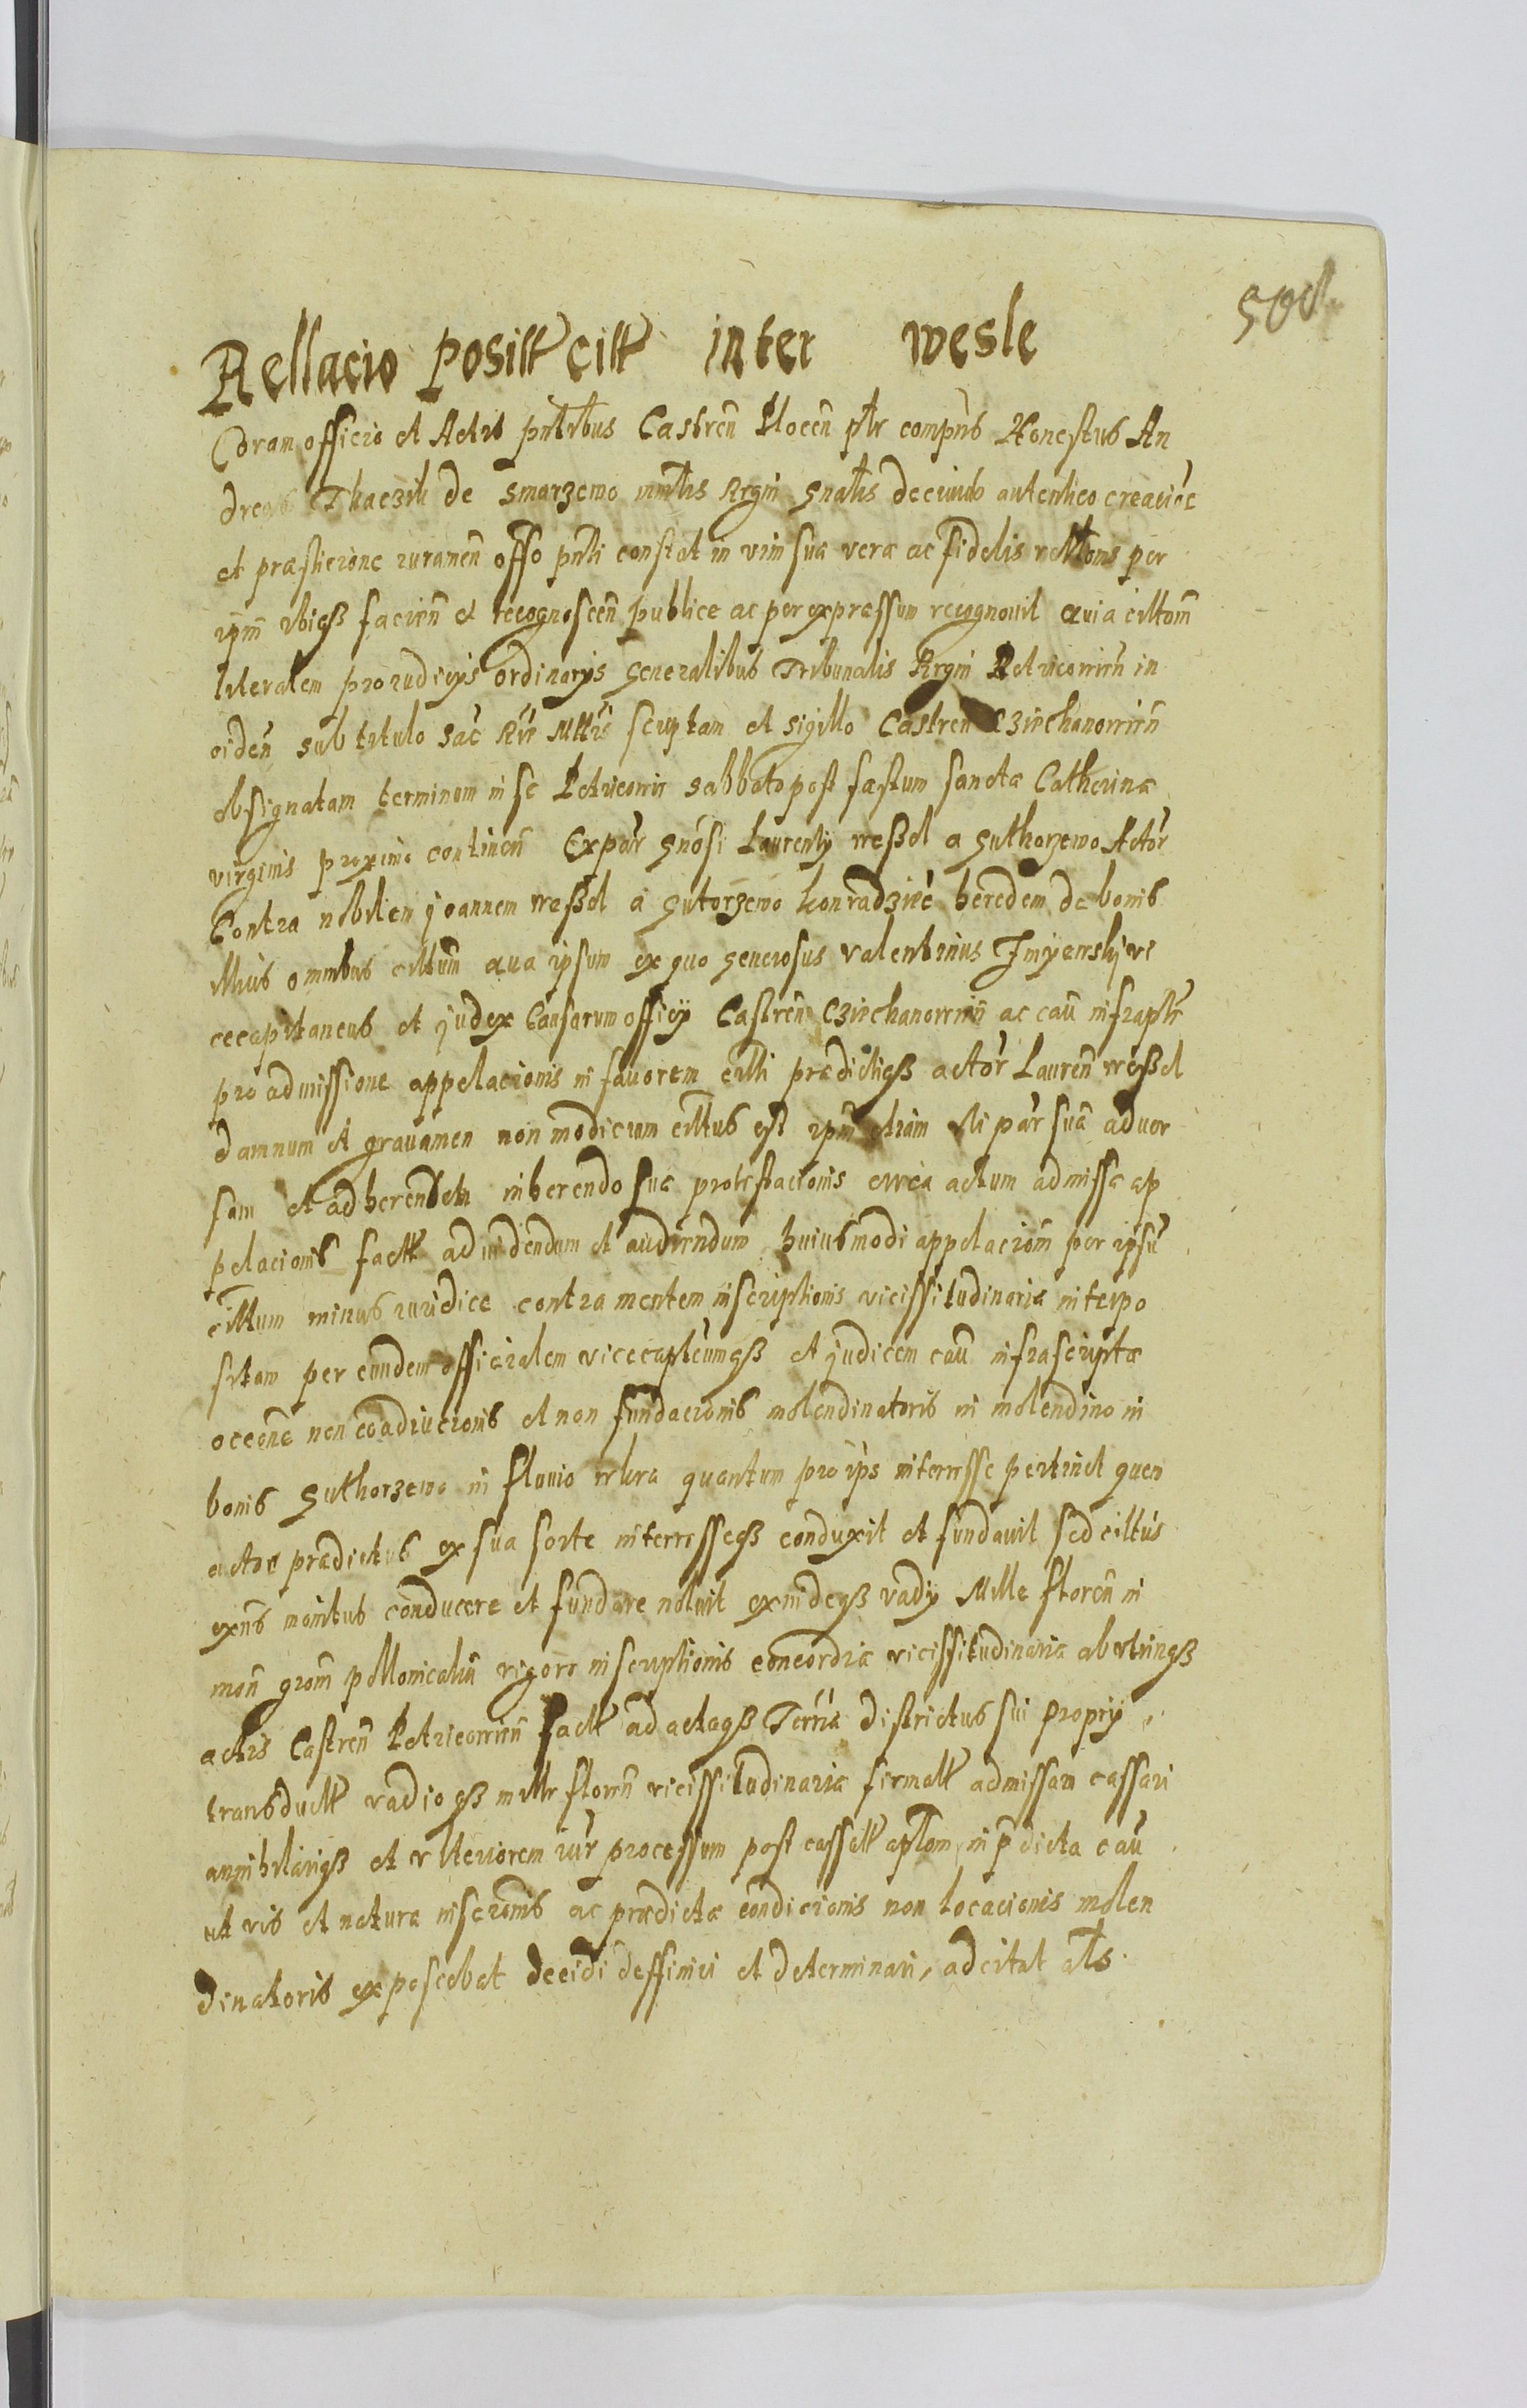 Rellacio Positt citt inter Wesle
Coram officio et Actis pntibus Castren Plocen plr compns Honestus An
dreas Tkaczik de Smarzewo mnlis Regni Gnalis de cuius autentico creacioe
et præsticione iuramen offo pnti constat in vim suæ veræ ac fidelis reltionis per
ipm ibiqß facien et recognoscen publice ac per expræssum recognovit Quia cittom
literalem pro iudicys ordinarys generalibus Tribunalis Regni Petricovien in
eiden sub titulo Sac Rie Mttis scriptam et sigillo Castren Cziechanovien
obsignatam terminum in se Petricovie Sabbato post fæstum sanctæ Catherinæ
virginis proxime continen Ex par Gnosi Laurenty Weßel a Guthorzewo Actor
Contra nobilem Joannem Weßel a Gutorzewo konradzicz heredem de bonis
illius omnibus cittum Qua ipsum ex quo generosus Valentinus vi
cecapitaneus et judex Causarum officy Castren Cziechanovien ac cau infraptr
pro admissione appelacionis in favorem citti prædictiqß actor Lauren Weßel
damnum et gravamen non modicum cittus est ipm etiam uti par sua adver
sam et adherendem inherendo suæ protestacionis circa actum admissæ ap
pelacionis factt ad videndum et audiendum huiusmodi appelacion per ipsu
cittum minus iuridice contra mentem inscriptionis vicissitudinariæ interpo
sitam per eundem officialem vicecapteumqß et judicem cau infrascriptæ
occone non coadiucionis et non fundacionis molendinatoris in molendino in
bonis Guthorzewo in fluvio wkra quantum pro ips interesse pertinet quen
actor prædictus ex sua sorte interesseqß conduxit et fundavit sed cittus
exns monitus conducere et fundare noluit exindeqß vady Mille floren in
mon grom pollonicaliu vigore inscriptionis concordiæ vicissitudinariæ ab utrinqß
actis Castren Petricovien factt ad actaqß Terria districtus sui propry
transductt vadioqß mille floren vicissitudinariæ firmatt admissam cassari
annihilariqß et ulteriorem iur processum post cassatt aplom in pdicta cau
ut vis et natura inscionis ac prædictæ condicionis non locacionis molen
dinatoris exposcebat decidi deffiniri et determinari, adcitat atts